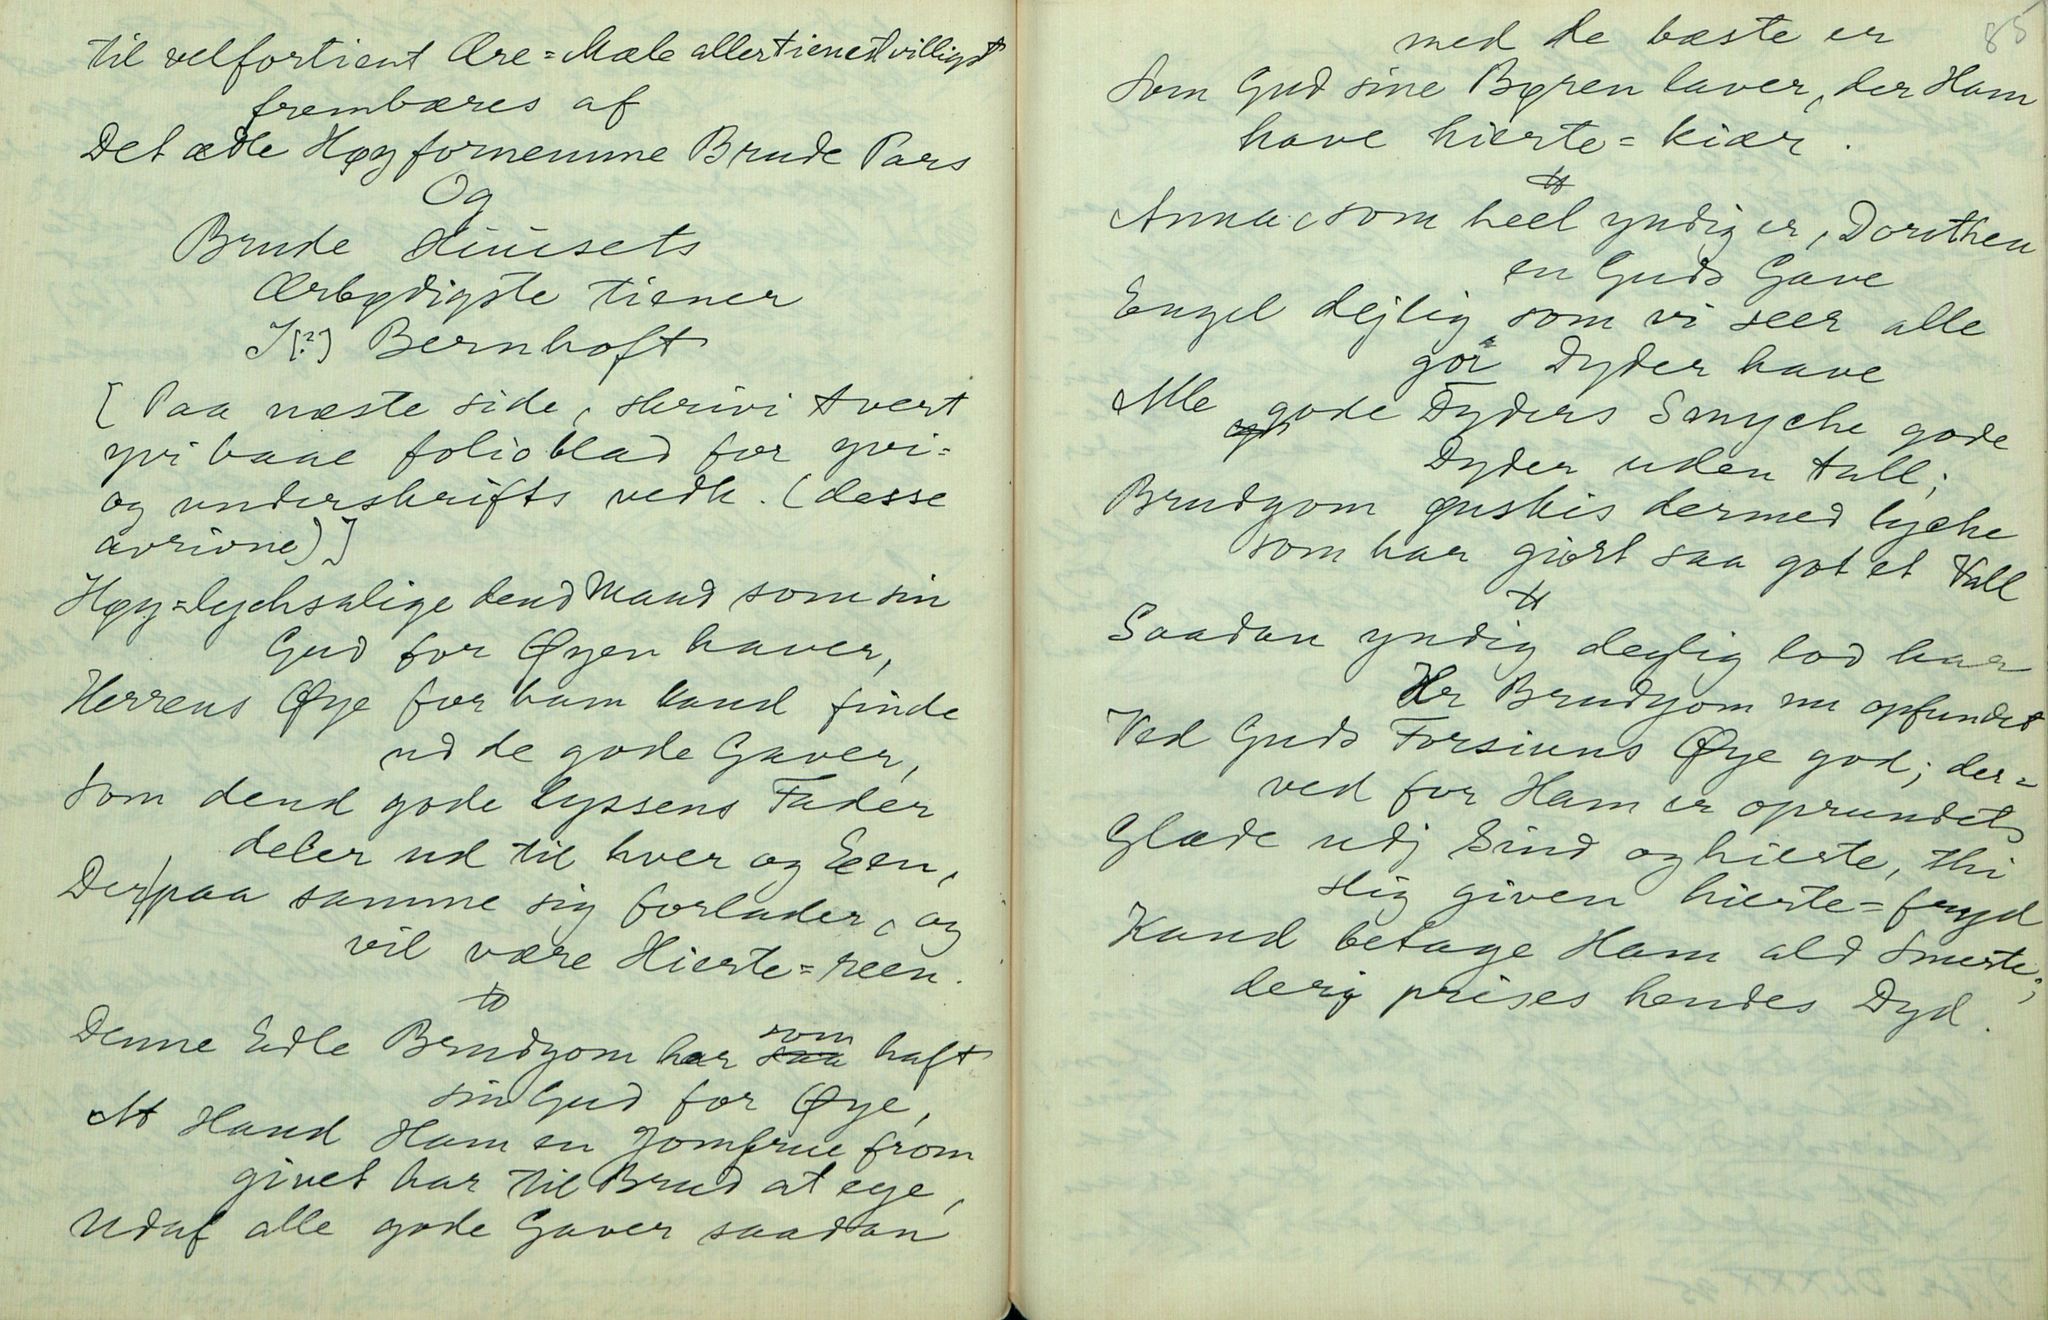 til velfortient Ære=Mæle allertienestvilligst
frembæres af
Det ædle Høyfornemme Brude Pars
Og
Brude Huusets
Ærbødigste tiener
J[?] Bernhoft
[Paa næste side, skrivi tvert
yvi baae folioblad for yvi=
og underskrifts vedk. (desse
avrivne)]
Høy=lychsalige dend Mand som sin
Gud for Øyen haver,
Herrens Øye for ham kand finde
ud de gode Gaver,
Som dend gode lyssens Fader
deler ud til hver og Een,
Der paa samme sig forlader, og
vil være Hierte=reen.
Denne Edle Brudgom har som saa haft
sin Gud for Øye,
At Hand Ham en Jomfrue from
givet har til Brud at eye,
Udaf alle gode Gaver saadan
85
med de bæste er
Som Gud sine Børen laver, der Ham
have hierte=kiær.
Anna, som heel yndig er, Dorothea
en Guds Gave
Engel dejlig som vi seer alle
gör Dyder have
Alle gode Dyders Smyche gode
Dyder uden tall;
Brudgom ønskis dermed lyche
som har giort saa got et Vall
Saadan yndig deylig lod har
Hr Brudgom nu opfundet
Ved Guds Forsiuns Øye god; der=
ved for Ham er oprundet
Glæde udj Sind og hierte, thi
slig given hierte=fryd
Kand betage Ham ald Smerte;
derj prises hendes Dyd.